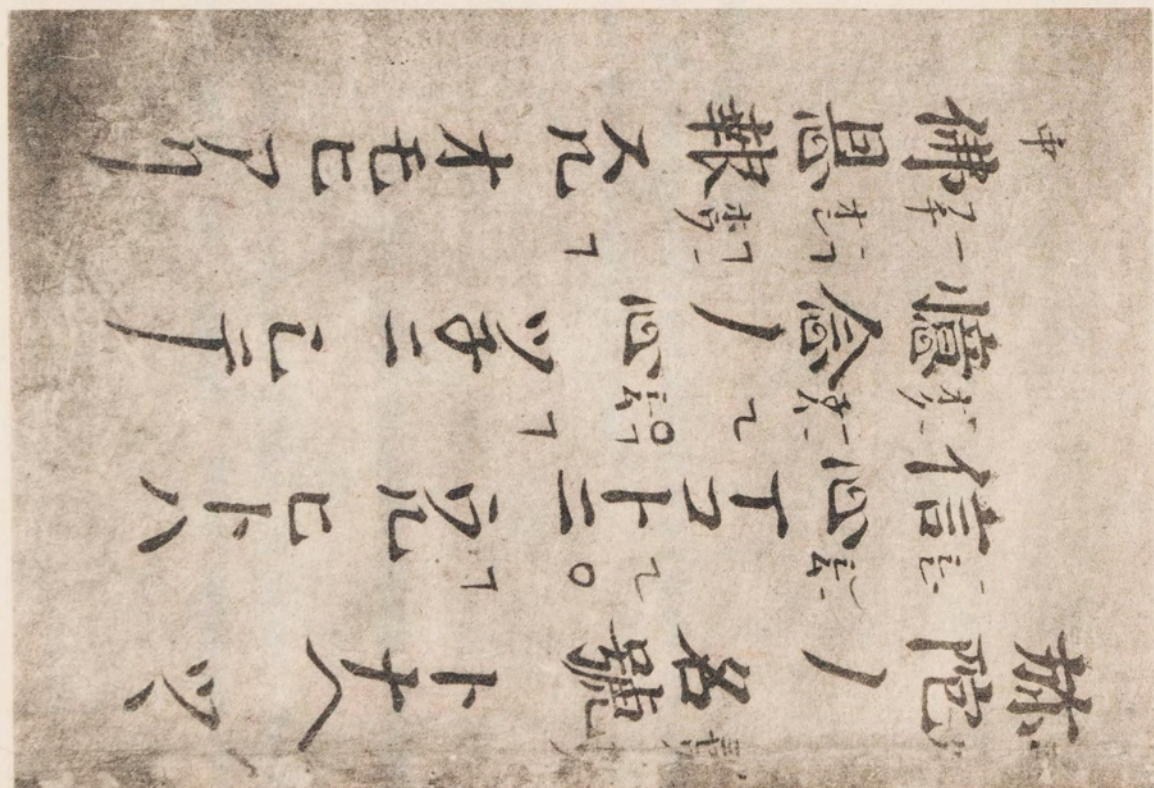 弥陀ノ名號トナヘツヽ
信心マコトニウルヒトハ
憶念ノ心ツネニシテ
佛恩報スルオモヒアリ